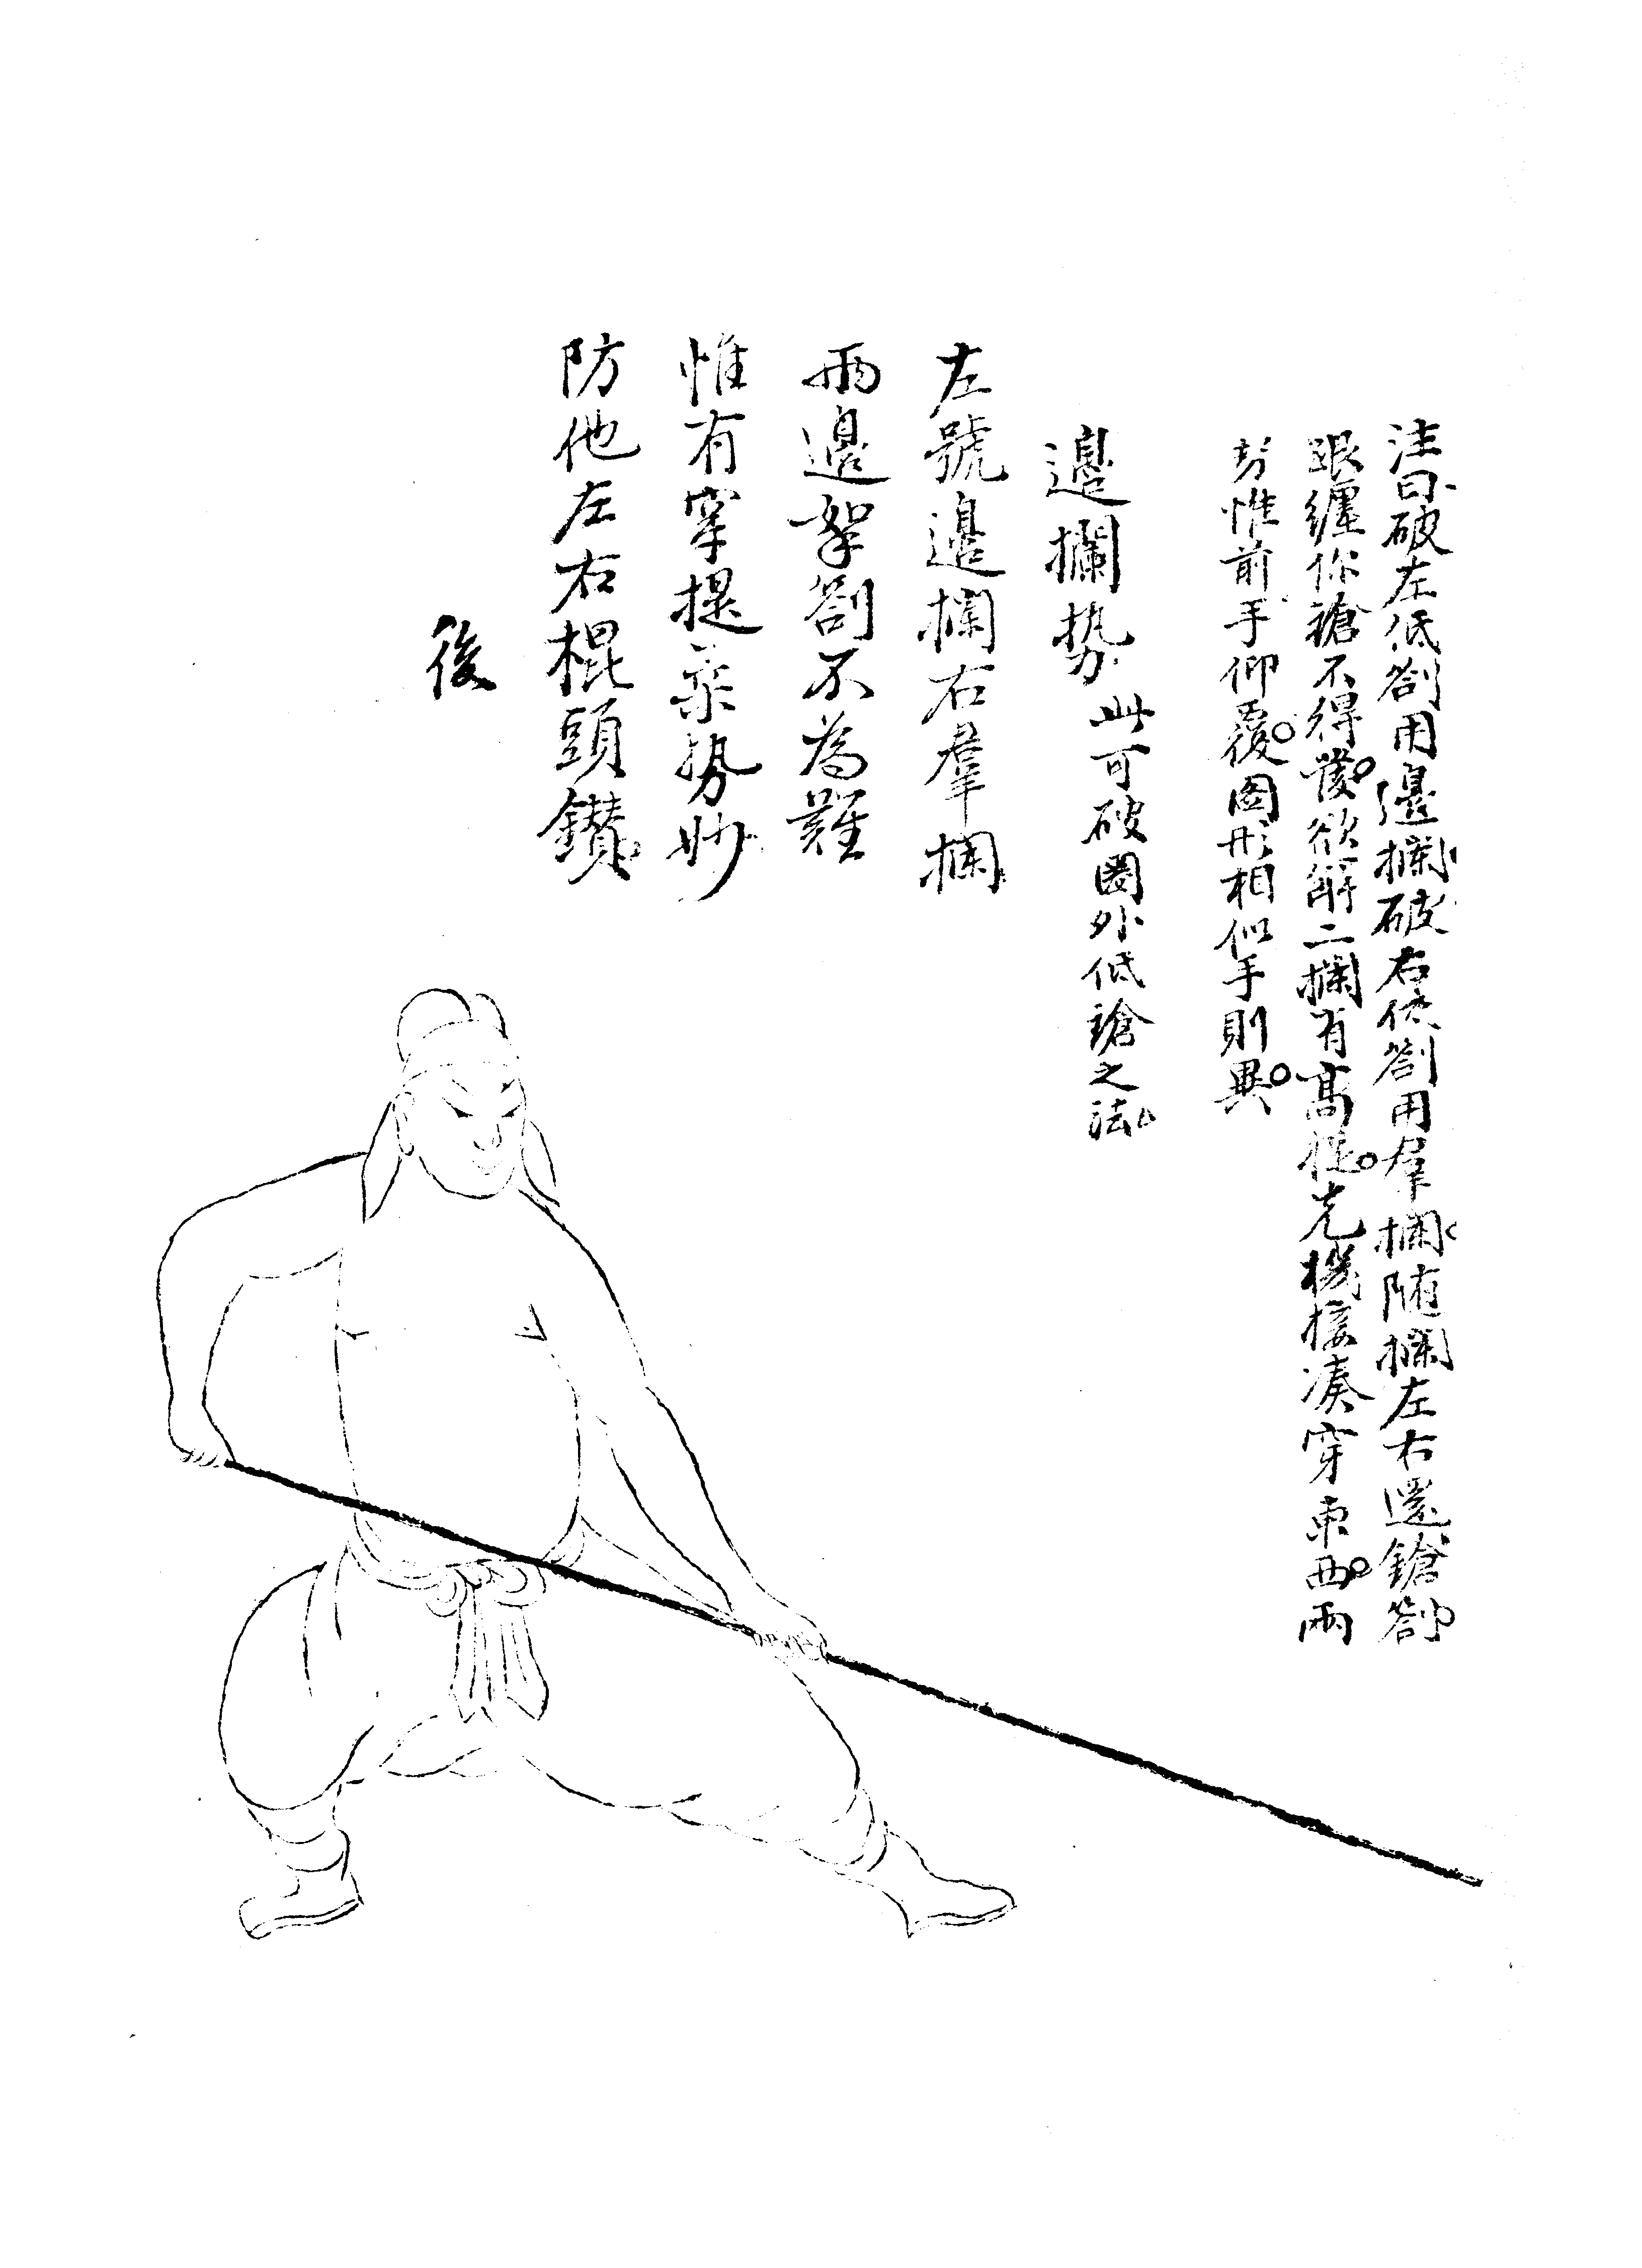 注曰破左低劄用邊攔破右低劄用羣攔随攔左右還鎗劄
跟纏你鎗不得發欲解二攔有高提克機接凑穿東西兩
勢惟前手仰覆圖形相似手則異
邊攔势 此可破圈外低鎗之法
左號邊攔右羣攔
兩邊拏劄不為難
惟有穿提柔勢妙
防他左右棍頭鑽
後